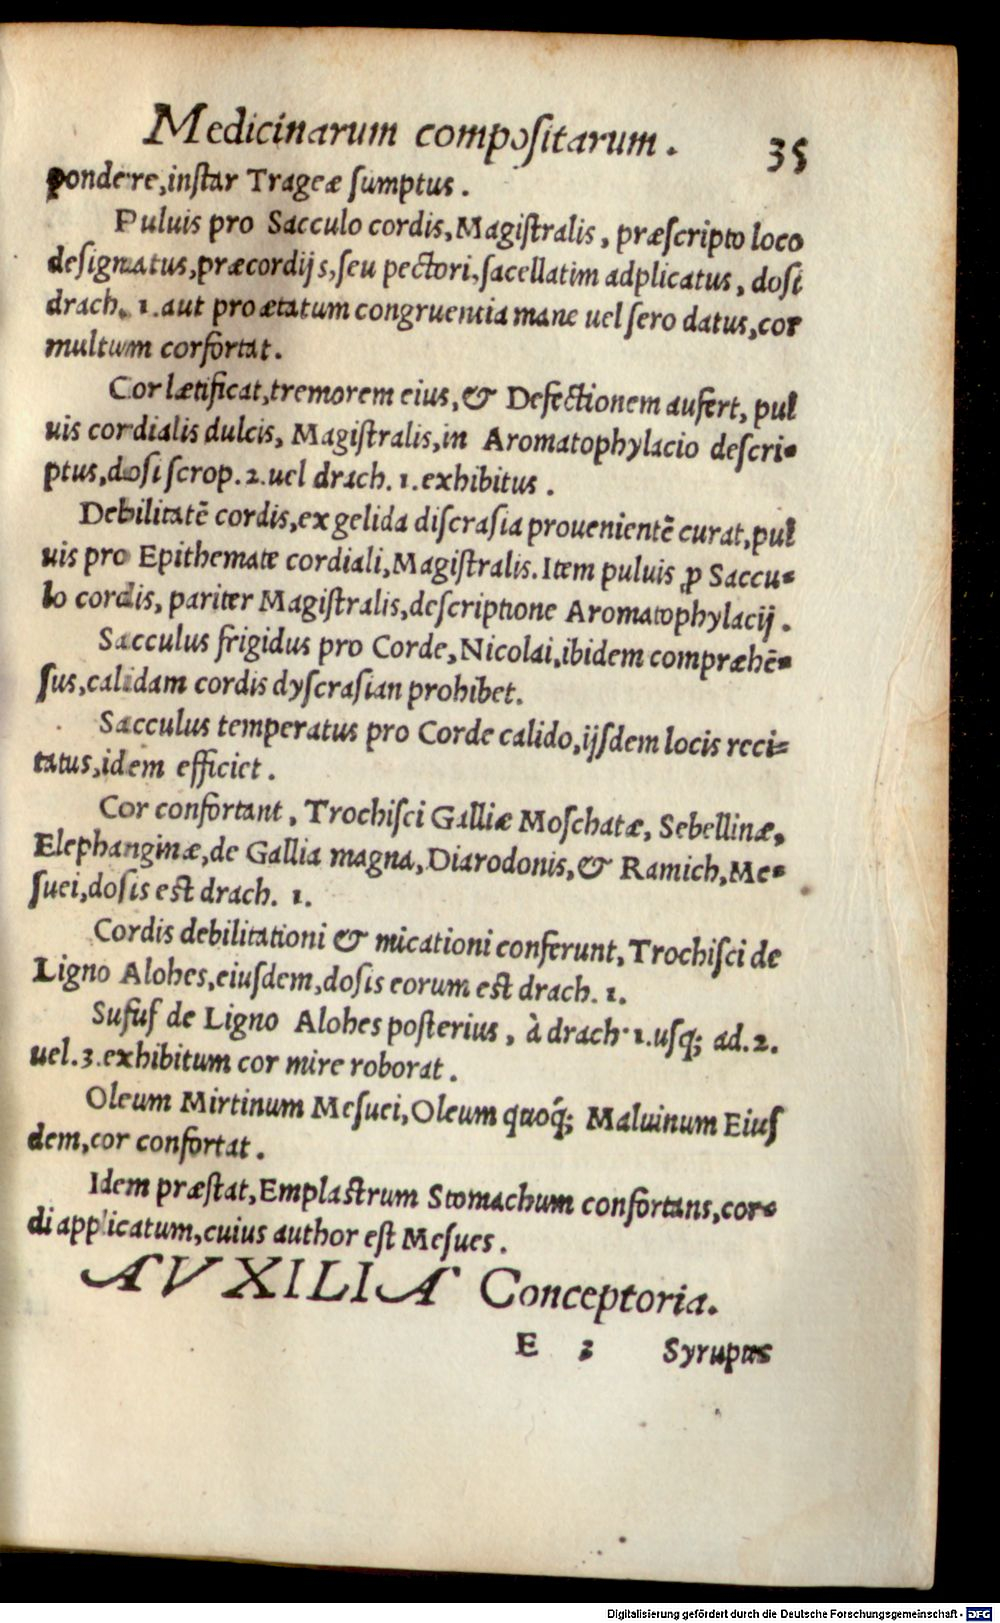 Medicinarum compositarum. 35
pondere,inſtar Trageæ ſumptus.
Puluis pro Sacculo cordis,Magiſtralis, præſcripto loco
deſignatus,præcordijs,ſeu pectori,ſacellatim adplicatus, doſi
drach. 1.aut pro ætatum congruentia mane uel ſero datus,cor
multum corfortat.
Cor lætificat,tremorem eius,& Defectionem aufert, pul
uis cordialis dulcis, Magiſtralis,in Aromatophylacio deſcri=
ptus,doſi ſcrop.2.uel drach.1.exhibitus.
Debilitatē cordis,ex gelida diſcraſia prouenientē curat,pul
uis pro Epithemate cordiali,Magiſtralis.Item puluis ꝓ Saccu=
lo cordis, pariter Magiſtralis,deſcriptione Aromatophylacij.
Sacculus frigidus pro Corde,Nicolai,ibidem compræhē=
ſus,calidam cordis dyſcraſian prohibet.
Sacculus temperatus pro Corde calido,ijſdem locis reci=
tatus,idem efficiet.
Cor confortant, Trochiſci Galliæ Moſchatæ, Sebellinæ,
Elephanginæ,de Gallia magna,Diarodonis,& Ramich,Me=
ſuei,doſis eſt drach. 1.
Cordis debilitationi & micationi conferunt,Trochiſci de
Ligno Alohes,eiuſdem,doſis eorum eſt drach.1.
Sufuf de Ligno Alohes poſterius, à drach.1.uſq; ad.2.
uel.3.exhibitum cor mire roborat.
Oleum Mirtinum Meſuei,Oleum quoq́; Maluinum Eiuſ
dem,cor confortat.
Idem præſtat,Emplaſtrum Stomachum confortans,cor=
di applicatum,cuius author eſt Meſues.
AVXILIA Conceptoria.
E 3 Syrupus
Digitalisierung gefördert durch die Deutsche Forschungsgemeinschaft - DFG